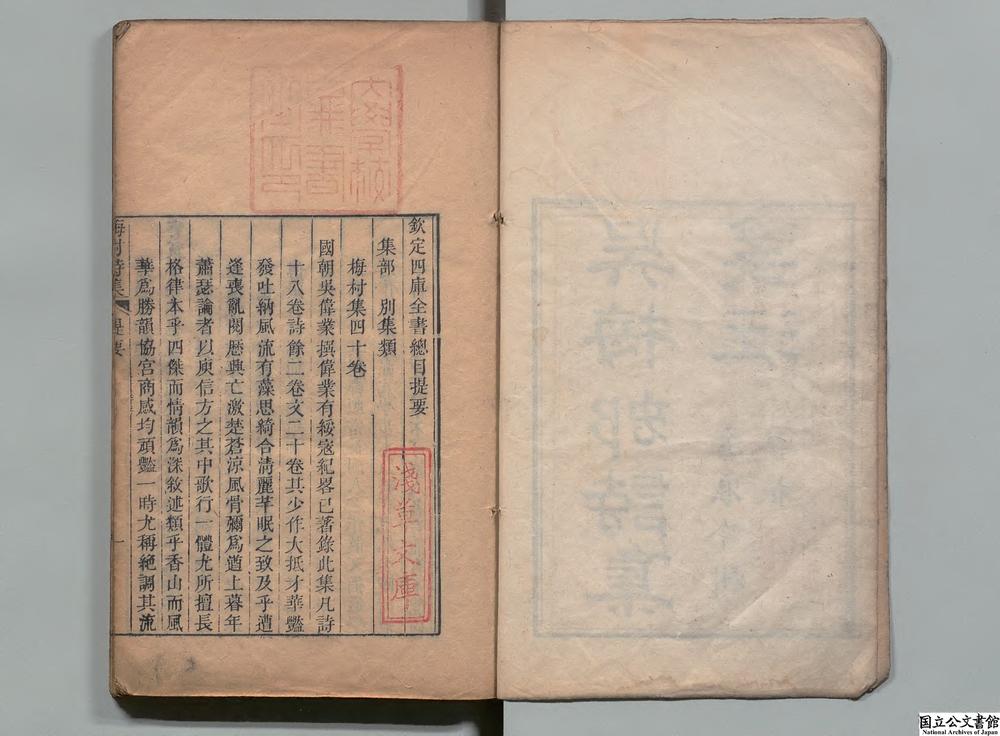 欽定四庫全書總目提要
集部 別集類
梅村集四十卷
國朝吳偉業撰偉業有綏寇紀畧已著錄此集凡詩
十八卷詩餘二卷文二十卷其少作大抵才華豔
發吐納風流有藻思綺合清麗芊眠之致及乎遭
逢喪亂閱歷興亡激楚蒼涼風骨彌爲遒上暮年
蕭瑟論者以庾信方之其中歌行一體尤所擅長
格律本乎四傑而情韻爲深敘述類乎香山而風
華爲勝韻協宮商感均頑豔一時尤稱絕調其流
梅村詩集 提要 一
淺草文庫
国立公文書館
National Archives of Japan